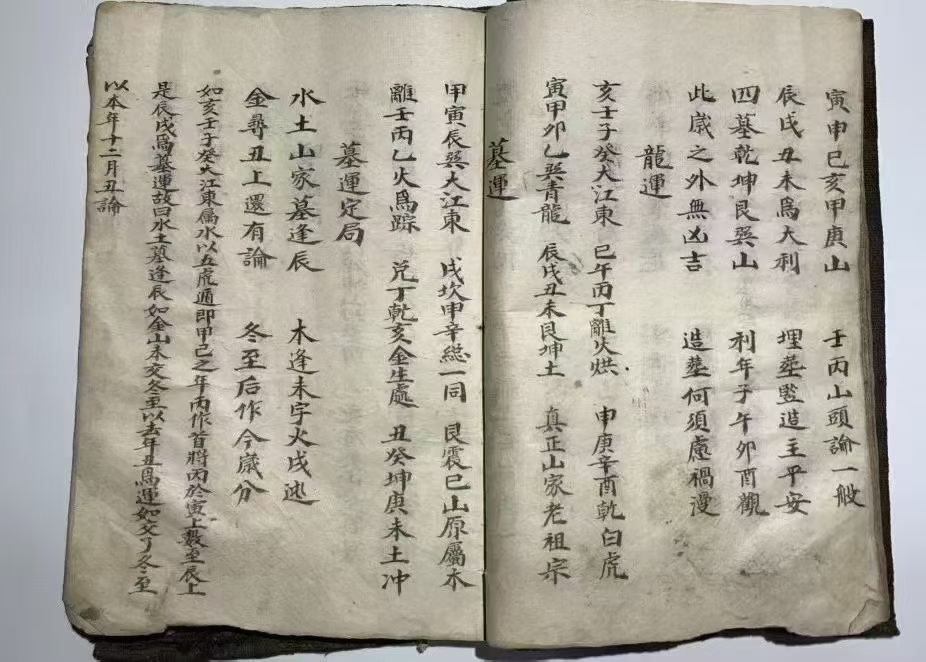 寅申巳亥甲庚山 壬丙山頭論一般
辰戌丑未為大利 埋塟豎造主平安
四墓乾坤艮巽山 利年子午卯酉觀
此歲之外無凶吉 造塟何須慮禍漫
龍運
亥壬子癸大江東 巳午丙丁離火烘 申庚辛酉乾白虎
寅甲卯乙巽青龍 辰戌丑未艮坤土 真正山家老祖宗
墓運
甲寅辰巽大江東 戌坎申辛総一同 艮震巳山原屬木
離壬丙乙火爲踪 兌丁乾亥金生處 丑癸坤庚未土冲
墓運定局
水土山家墓逢辰 木逢未字火戌逃
金尋丑上還有論 冬至后作今歲分
如亥壬子癸大江東属水以五虎遁即甲己之年丙作首將丙於寅上数至辰上
是辰戌爲墓運故曰水土墓逢辰如金山未交冬至以去年丑爲運如交了冬至
以本年十二月丑論